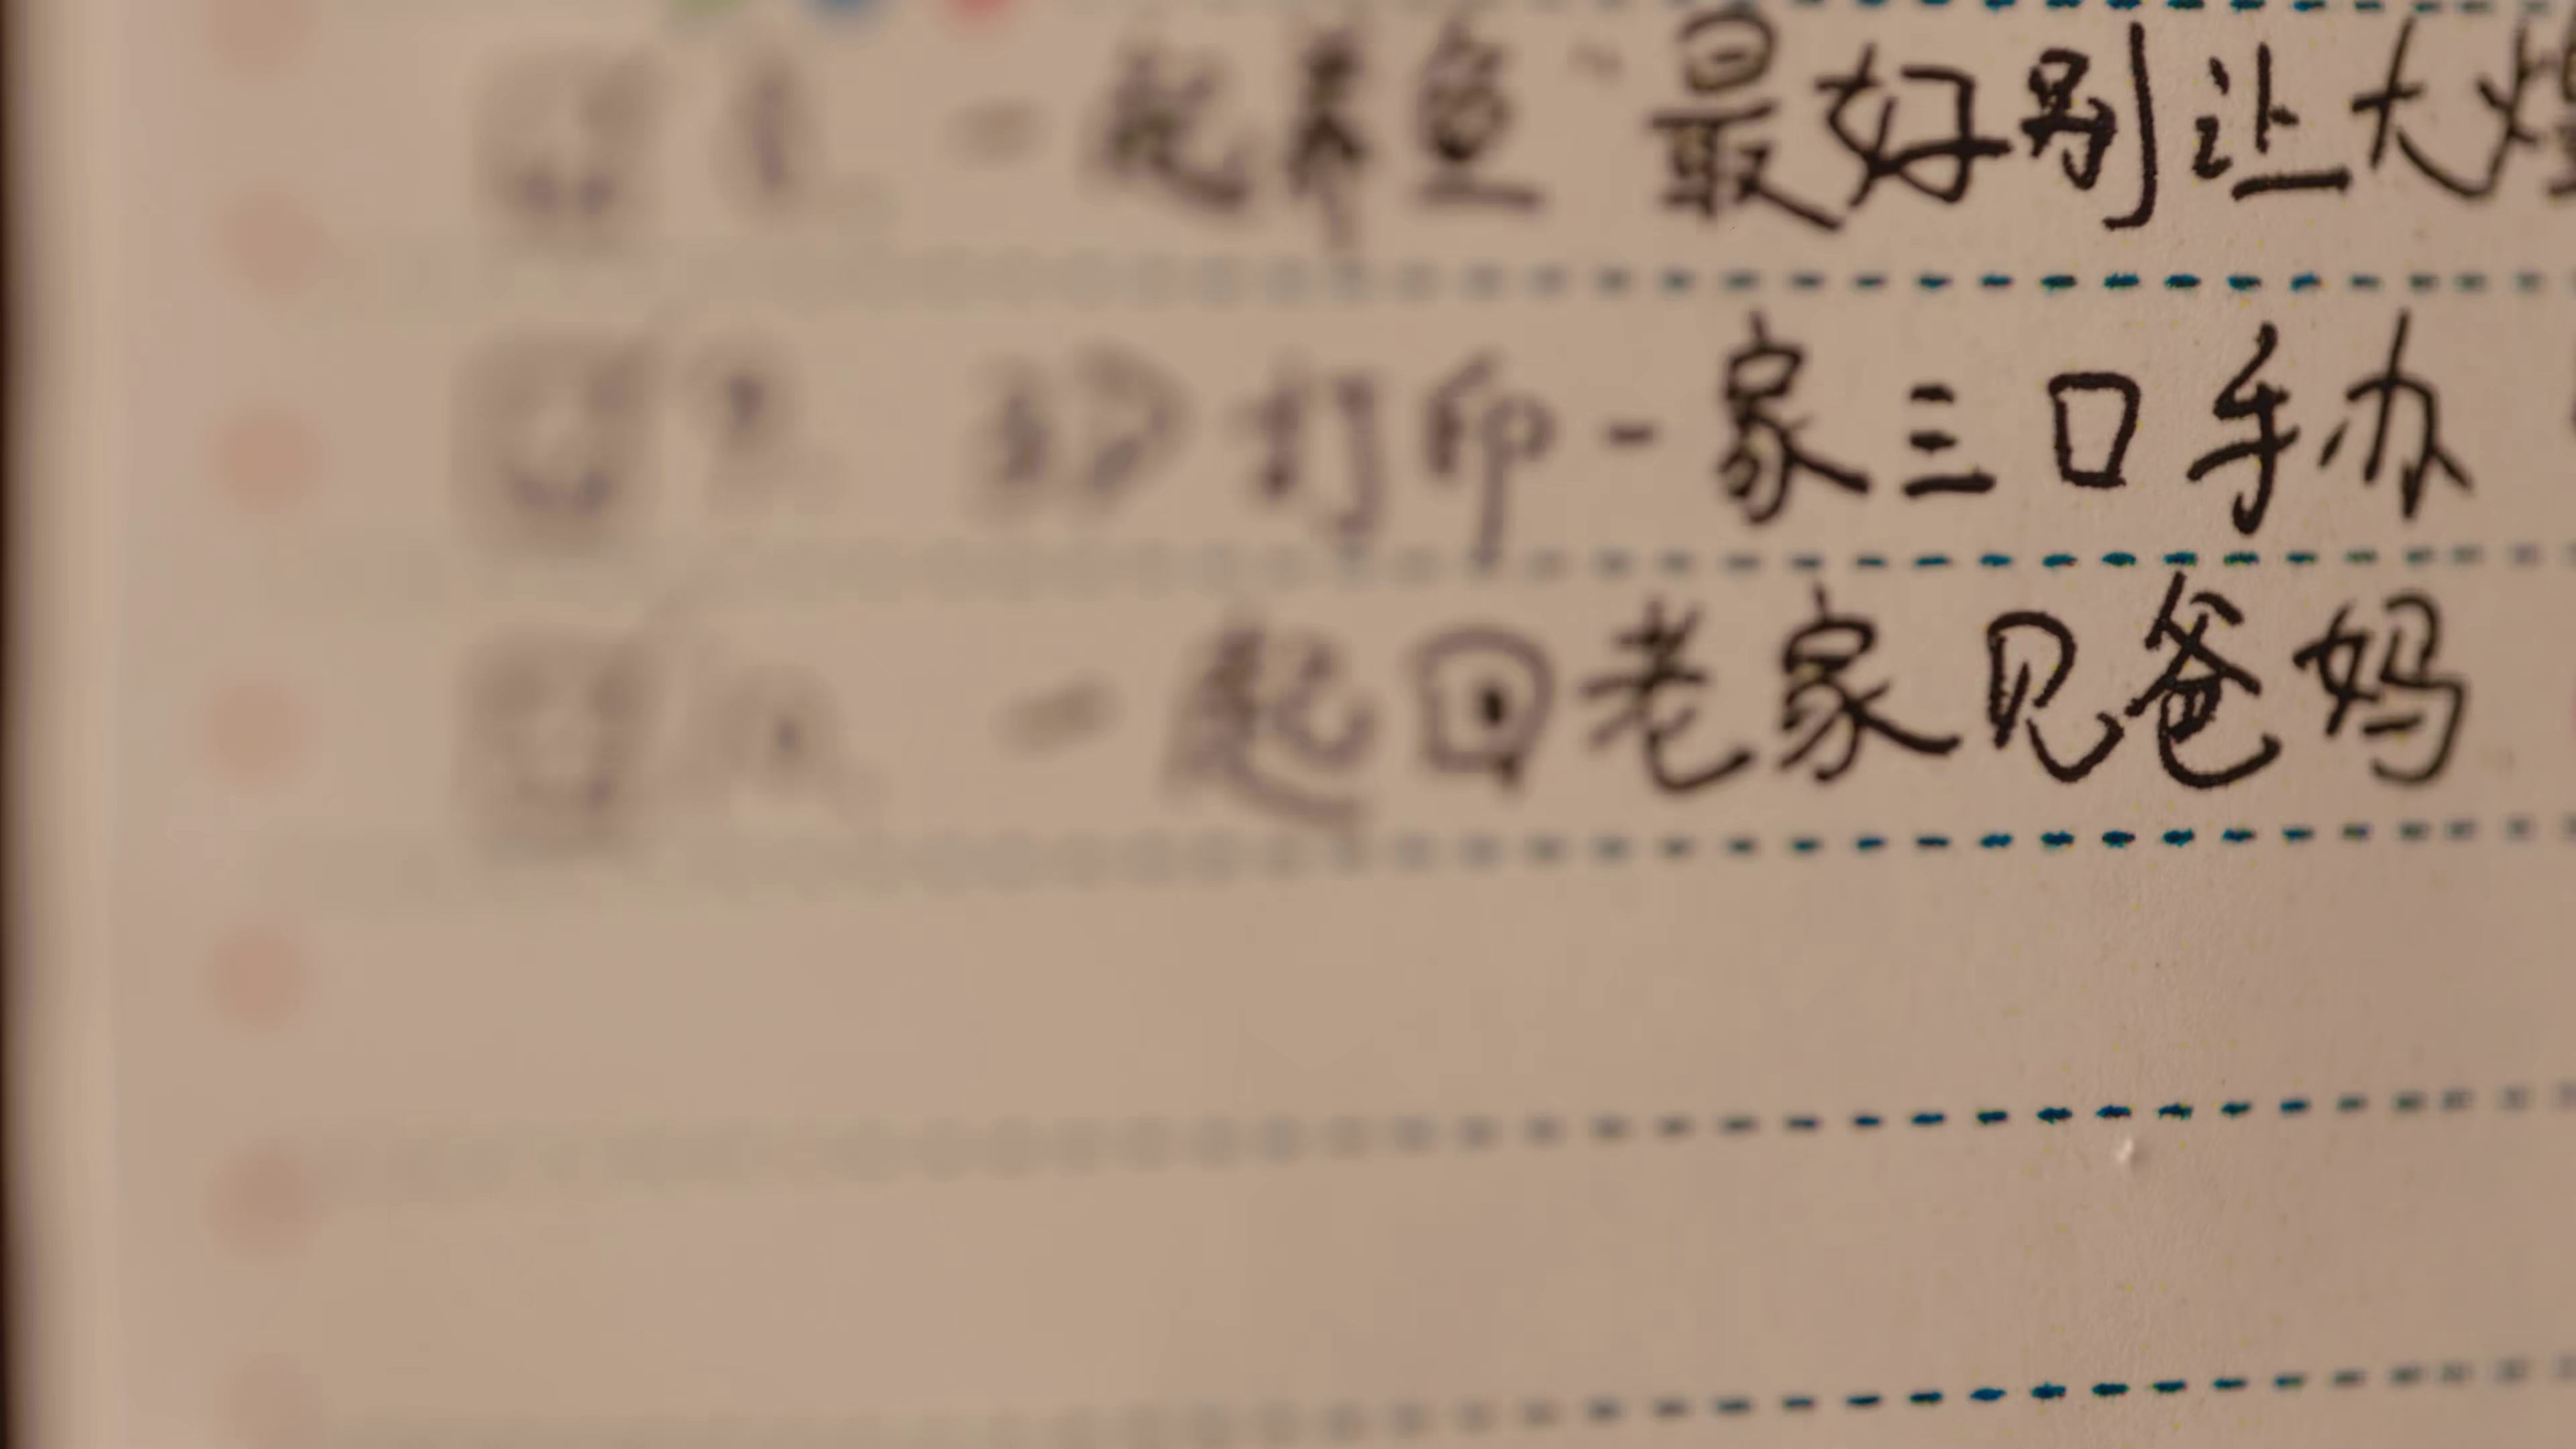 一起养鱼 最好别让大
3D打印一家三口手办
一起回老家见爸妈